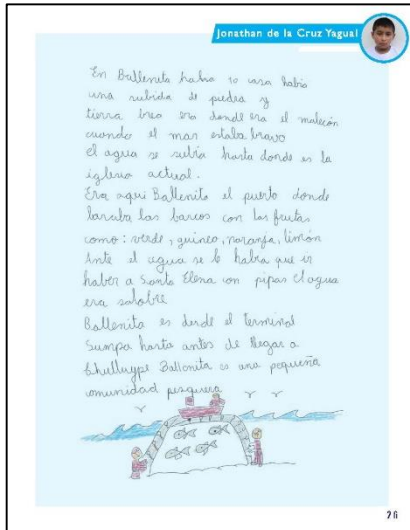 Jonathan de la Cruz Yagual
En Ballenita habia 10 casa habia
una subida de piedra y
tierra brea era donde era el malecón
cuando el mar estaba bravo
el agua se subia hasta donde es la
iglesia actual.
Era aqui Ballenita el puerto donde
los barcos con las frutas
como: verde, guineo, naranja, limón
Ante el agua se le habia que ir
haber a Santa Elena con pipas el agua
era salobre
Ballenita es desde el terminal
Sumpa hasta antes de llegar a
Ballenita es una pequeña
comunidad pesquera
26